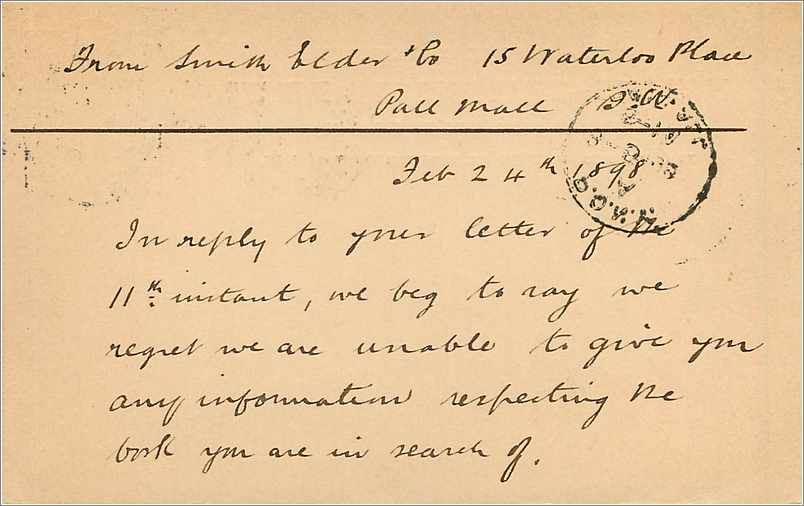 From Smith Elder & Co 15 Waterloo Place
Pall Mall S.W.
Feb 24th 1898
In reply to your letter of the
11th instant, we beg to say we
regret we are unable to give you
any information respecting the
book you are in search of.